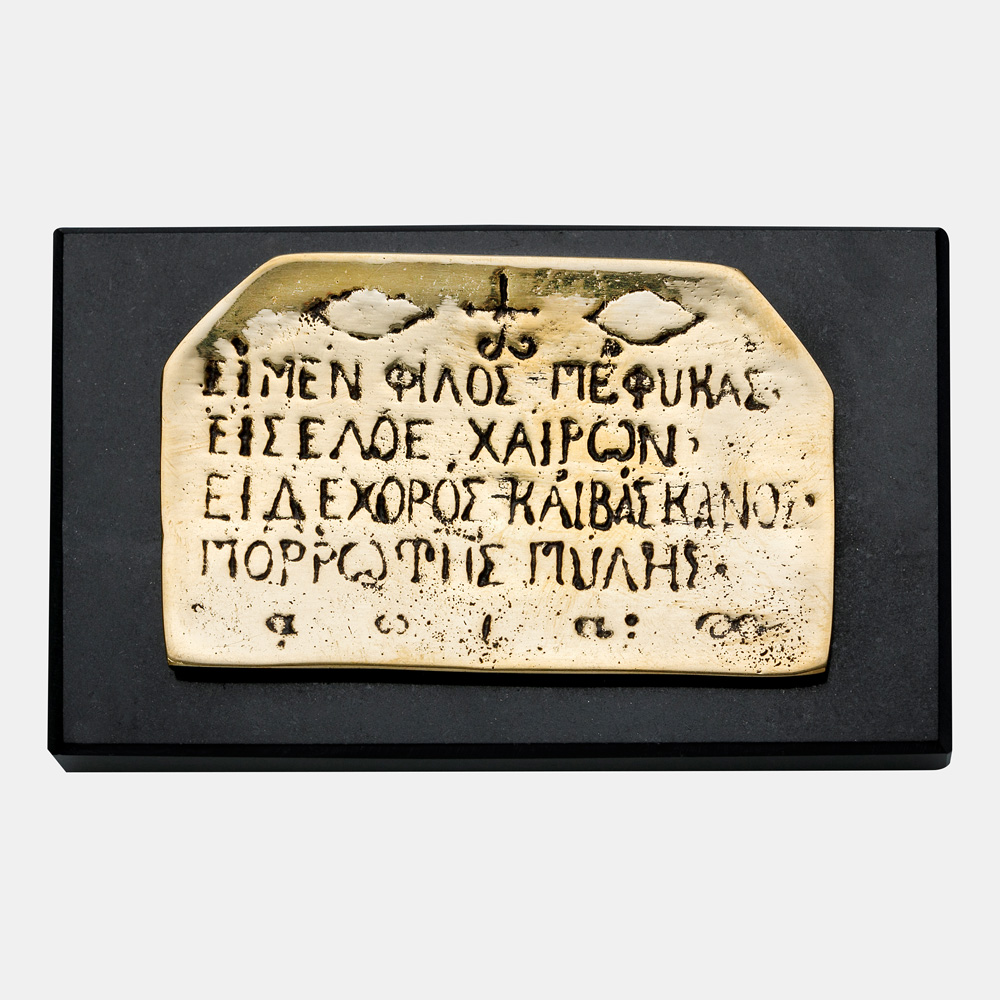 ΕΙ ΜΕΝ ΦΙΛΟΣ ΠΕΦΥΚΑΣ.
ΕΙΣΕΛΘΕ ΧΑΙΡΩΝ,
ΕΙ Δ ΕΧΘΡΟΣ ΚΑΙ ΒΑΣΚΑΝΟΣ.
ΠΟΡΡΩ ΤΗΣ ΠΥΛΗΣ.